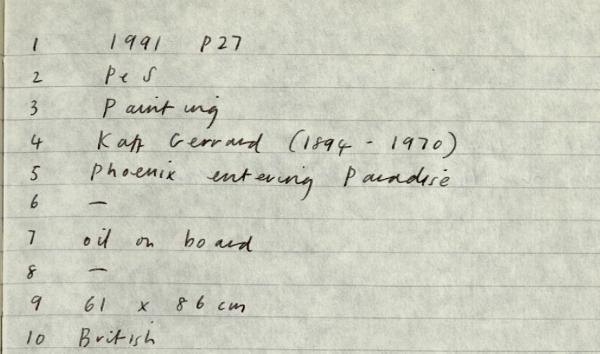 1 1991 P27
2 PeS
3 Painting
4 Kaff Gerrard (1894 - 1970)
5 Phoenix entering Paradise
6 —
7 oil on board
8 —
9 61 x 86 cm
10 British